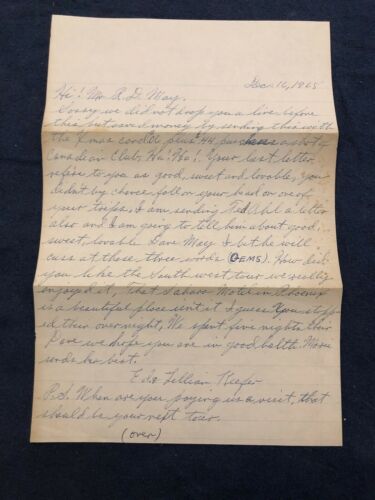 Dec 16, 1965
Hi! Mr R. D. May,
Sorry we did not drop you a line before
this but saved money by sending this with
the Xmas card. 06 plus 44 a shot of
Canadian Club, Ha! Ho! Your last letter
refers to you as good, sweet and lovable, you
didnt by chance fall on your head on one of
your trips, I am sending Ted Ahl a letter
also and I am going to tell him about good,
sweet, lovable Dave May I bet he will
cuss at those three words (GEMS). How did
you like the South west tour we really
enjoyed it, That Sahara Motel in Phoenix
is a beautiful place isnt it I guess you stopp
ed their over night, We spent five nights their
Dave we hope you are in good health. Mom
sends her best.
Ed & Lillian Keefer
P.S. When are you paying us a visit, that
should be your next tour.
(over)